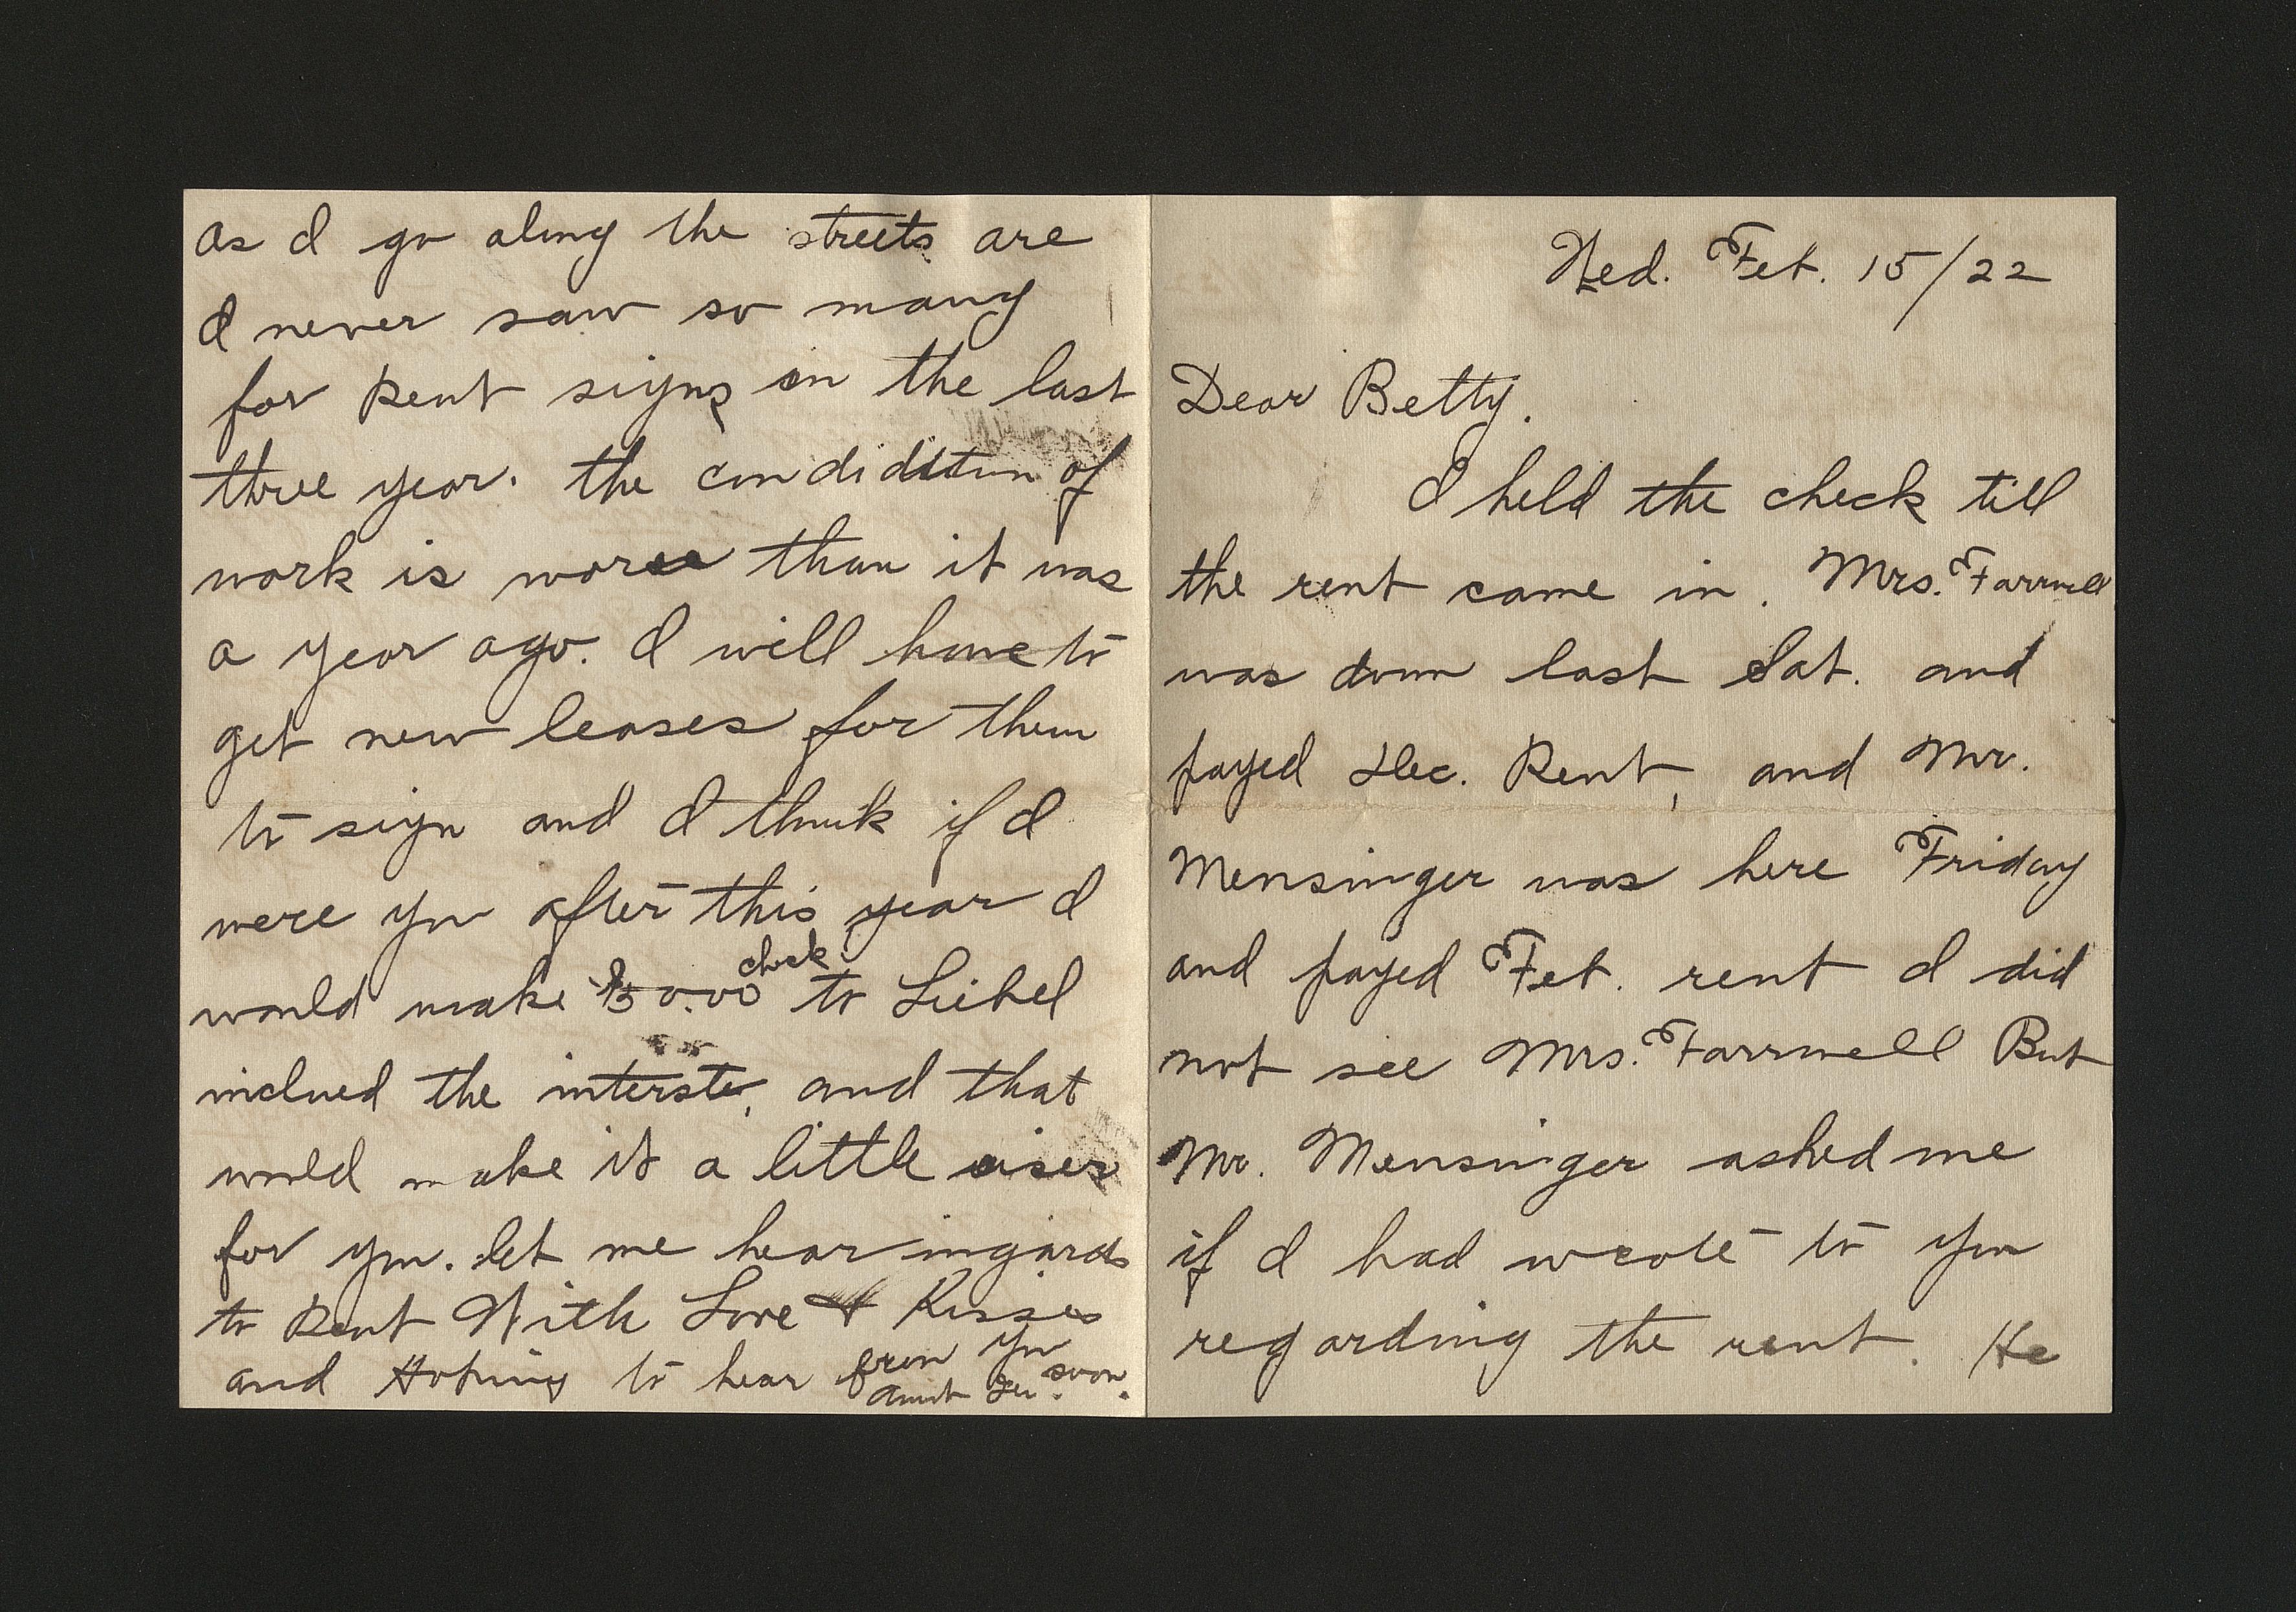 Wed. Feb. 15/22
Dear Betty.
I held the check till
the rent came in. Mrs. Farrwell
was down last Sat. and
payed Dec. Rent, and Mr.
Mensinger was here Friday
and payed Feb. rent I did
not see Mrs. Farrwell But
Mr. Mensinger asked me
if I had wrote to you
regarding the rent. He
as I go along the streets are
I never saw so many
for Rent signs in the last
three year. the condidition of
work is worse than it was
a year ago. I will have to
get new leases for them
to sign and I think if I
were you after this year I
check
would make $50.00 to Liebel
inclued the interste, and that
would make it a little eiser
for you. let me hear ingards
to Rent With Love & Kisses
and Hoping to hear from you soon.
Aunt